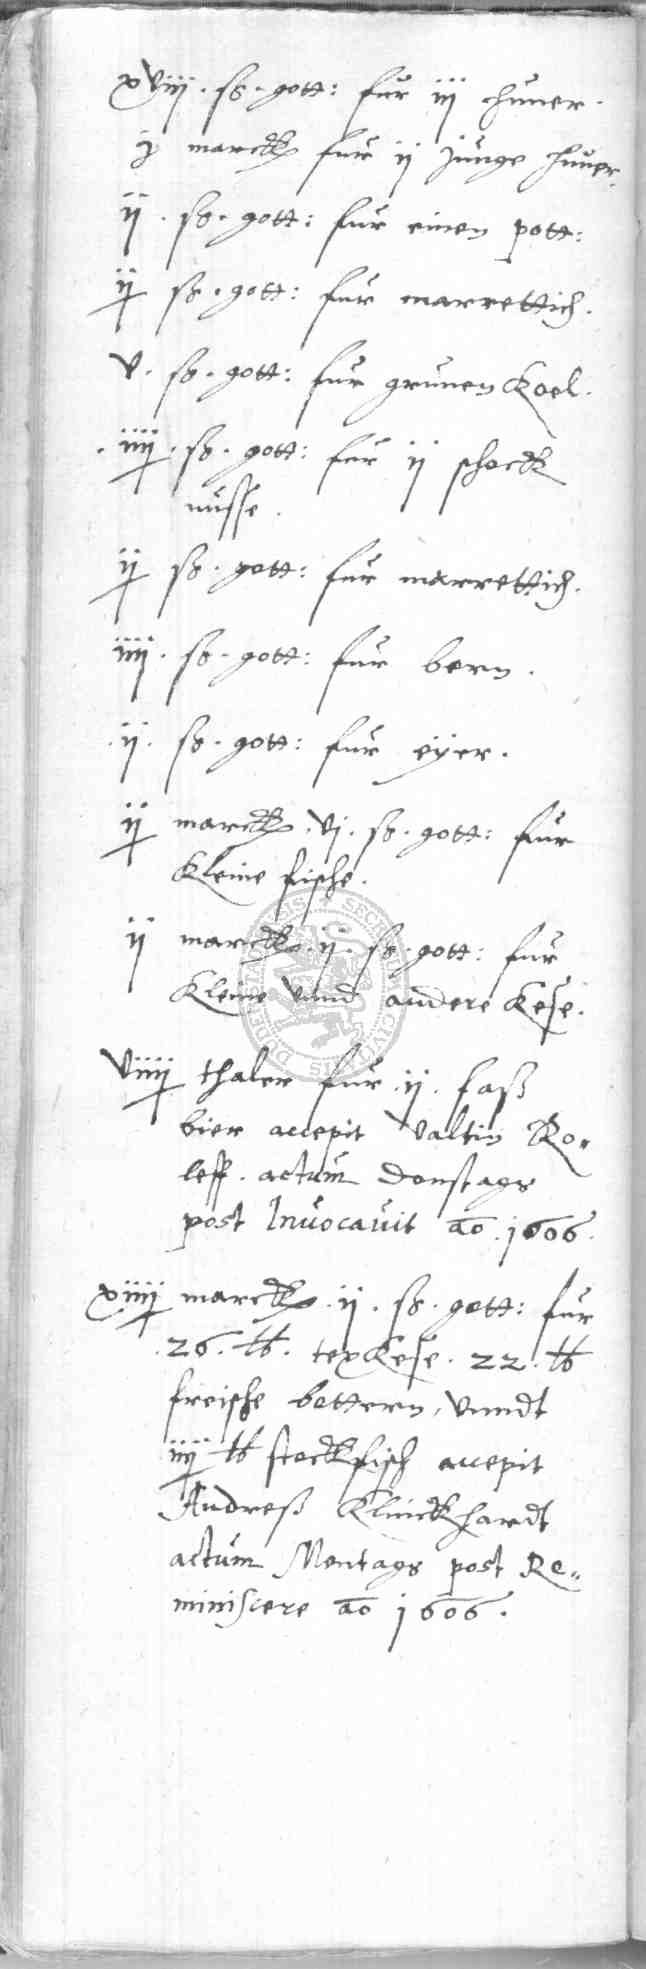 xviij. ß. gott: fur iij huner.
j marck fur ij junge huner.
ij. ß. gott: fur einen pott:
ij ß. gott: fur marrettich.
v. ß. gott: fur grunen Koel.
iiij. ß. gott: fur ij schock
nusse.
ij ß. gott: fur marrettich.
iiij. ß. gott: fur bern.
ij. ß. gott: fur eÿer.
ij marck. vj. ß. gott: fur
Kleine fische.
ij marck. ij. ß. gott: fur
Kleine vnnd andere Kese.
viiij thaler fur. ij. faß
bier accepit Valtin Ro=
leff. actum donstags
post Invocauit ao. 1606.
xiiij marck. ij. ß. gott: fur
26. lb. texKese. 22. lb
freische bottern, vnndt
iiij lb stockfisch accepit
Andreß Klinckhardt
actum Montags post Re=
miniscere ao 1606.
SECRETUM CIVITATIS DUDERSTADENSIS